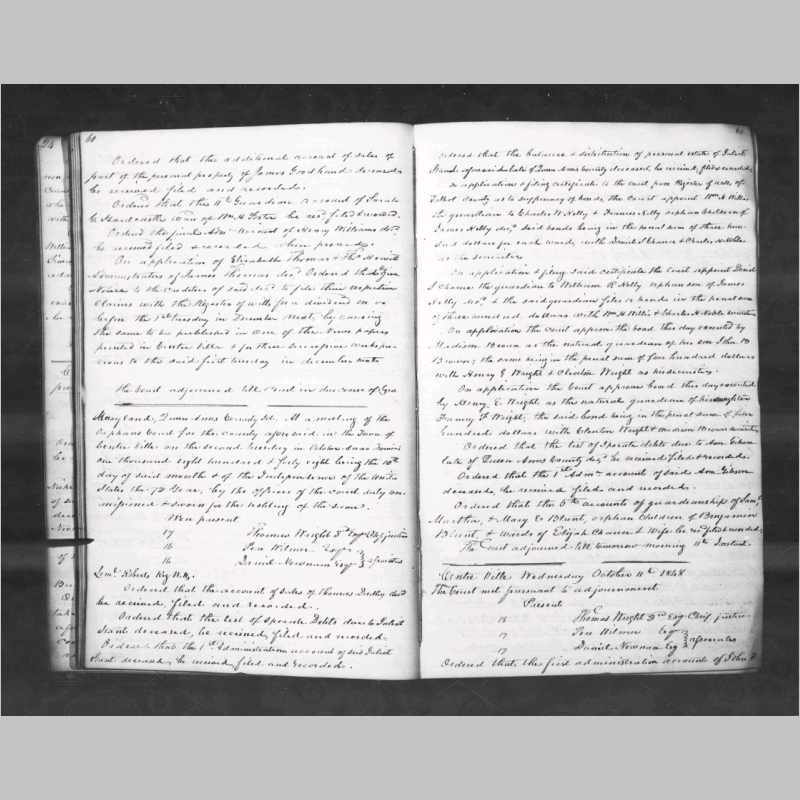 60
Ordered that the additional account of sales of
part of the personal property of James Goodhand deceased
be received filed and recorded
Ordered that the 11th Guardian account of Sarah
E Hardcastle Ward of Wm H. Foster be recd filed & record.
Ordered the final Adm account of Henry Williams decd
be received filed & recorded when proved
On application of Elizabeth Thomas & Thos
Administrators of James Thomas decd Ordered they give
Notice to the creditors of said decd to file their respective
Claims with the Register of wills for a dividend on or
before the 1st Tuesday in December next, by causing
the same to be published in one of the News papers
printed in Centre Ville & for three successive weeks pre-
vious to the said first tuesday in december next
The Court adjourned till Court in due course of
Maryland, Queen Anns County Sct. At a meeting of the
Orphans Court for the county aforesaid in the Town of
Centre Ville on the second Tuesday in October Anno Domini
one thousand eight hundred & forty eight being the 10th
day of said month & of the Independence of the United
States the 73 Year, by the officers of the court duly com-
missioned & sworn for the holding of the same.
Were present
17 Thomas Wright 3d Esqr Chf justice
16 Pere Wilmer Esqr
16 Daniel Newnam Esqr } associates
Saml. Roberts Reg W.
Ordered that the account of sales of Thomas decd
be received, filed and recorded.
Ordered that the list of Sperate Debts due to Juliet
deceased, be received, filed and recorded
Ordered that the 1st Administration account of said Juliet
deceased be received, filed and recorded.
Ordered that the balance & distribution of personal estate of Juliet
late of Queen Anns County deceased, be received, filed & recorded
On application & filing certificate to the court from Register of wills of
Talbot County as to sufficiency of bonds, the Court appoint Wm H Willis
the guardian to Charles W Nelly & Francis Nelly orphan children of
James Nelly decd said bonds being in the penal sum of three hun-
dred dollars for each ward, with Daniel J Chance & Charles H Noble
as the securities
On application & filing said certificate the Court appoint Daniel
J Chance the guardian to William R Nelly orphan son of James
Nelly decd. & the said guardian files a bond in the penal sum
of three hundred dollars with Wm H Willis & Charles H Noble securities
On application the Court approve the bond this day executed by
Madison Brown as the natural guardian of his son John B
Brown; the same being in the penal sum of five hundred dollars
with Henry E Wright & Clinton Wright as his securities.
On application the Court approve bond this day executed
by Henry E. Wright as the natural guardian of his daughter
Fanny F. Wright; the said bond being in the penal sum of five
hundred dollars with Clinton Wright & Madison Brown securities
Ordered that the list of Sperate debts due to Ann Gibson
late of Queen Anns County decd be received filed & recorded.
Ordered that the 1st Admn. account of said Ann Gibson
deceased, be received filed and recorded.
Ordered that the 6th accounts of guardianship of Saml.
Martha, & Mary E Blunt, orphan children of Benjamin
Blunt, & wards of Elijah Chance & Wife be recd filed & recorded.
The Court adjourned till tomorrow morning 11th Instant.
Centre Ville Wednesday October 11th 1848
The Court met pursuant to adjournment
Present
18 Thomas Wright 3d Esqr Chief justice
17 Pere Wilmer Esqr
17 Daniel Newnam Esqr } associates
Ordered that the first administration account of John